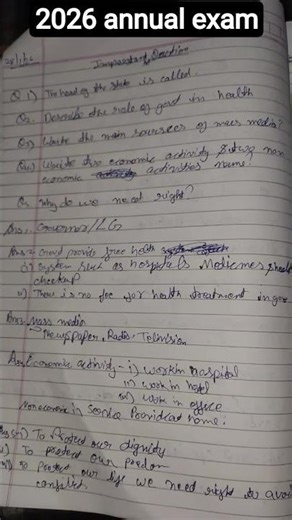 2026 annual exam
Important Question
Q 1) The head of the state is called.
Q2. Describe the role of govt in health
Q3) Write the main sources of mass media?
Q4) Write five economic activity & two non
economic activities name.
Q5 Why do we need right?
Ans1. Governor/LG
Ans-2 Govt provide free health
System such as hospitals Medicines
checkup
ii) There is no fee for health treatment in gov
Ans3. Mass media
Newspaper, Radio, Television
Ans4. Economic activity - i) work in hospital
ii) work in hotel
iii) work in office
Non economic in Service Provided at home.
Ans5 i) To Protect our dignity
ii) To protect our
protect our life we need right to avoid
conflicts